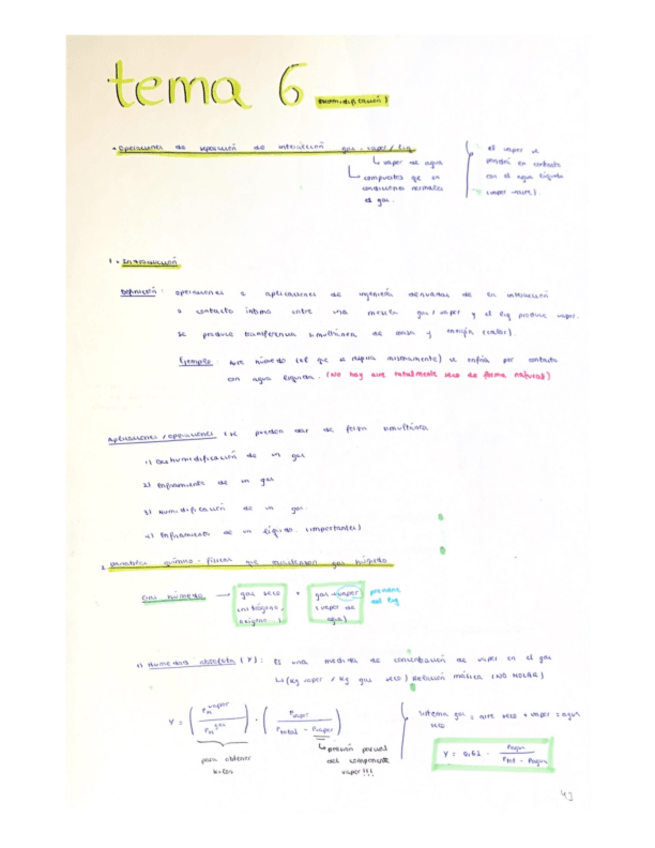 tema 6 (humidificación)
• Operaciones de separación de interacción gas - vapor / liq
↳ vapor de agua
↳ compuestos que en condiciones normales es gas.
el vapor se pondrá en contacto con el agua líquida (vapor - aire).
1. Introducción
Definición: operaciones o aplicaciones de ingeniería derivadas de la interacción
o contacto íntimo entre una mezcla gas / vapor y el liq produce vapor.
se produce transferencia simultánea de masa y energía (calor).
Ejemplo: aire húmedo (el que se respira mismamente) se enfría por contacto
con agua líquida. (No hay aire totalmente seco de forma natural)
Aplicaciones / operaciones (se pueden dar de forma simultánea
1) Deshumidificación de un gas
2) Enfriamiento de un gas
3) Humidificación de un gas
4) Enfriamiento de un líquido. (importantes)
2. químico - físicas que gas húmedo
Gas húmedo → gas seco (nitrógeno, oxígeno...) + gas - vapor (vapor de agua) proviene del liq
1) Humedad absoluta (Y): Es una medida de concentración de vapor en el gas
↳ (Kg vapor / Kg gas seco) Relación másica (NO MOLAR)
Y = (Pm vapor / Pm gas) · (Pvapor / Ptotal - Pvapor)
para obtener kilos
↳ presión parcial del componente vapor!!!
sistema gas = aire seco + vapor = agua
Y = 0,62 · Pagua / Ptot - Pagua
43